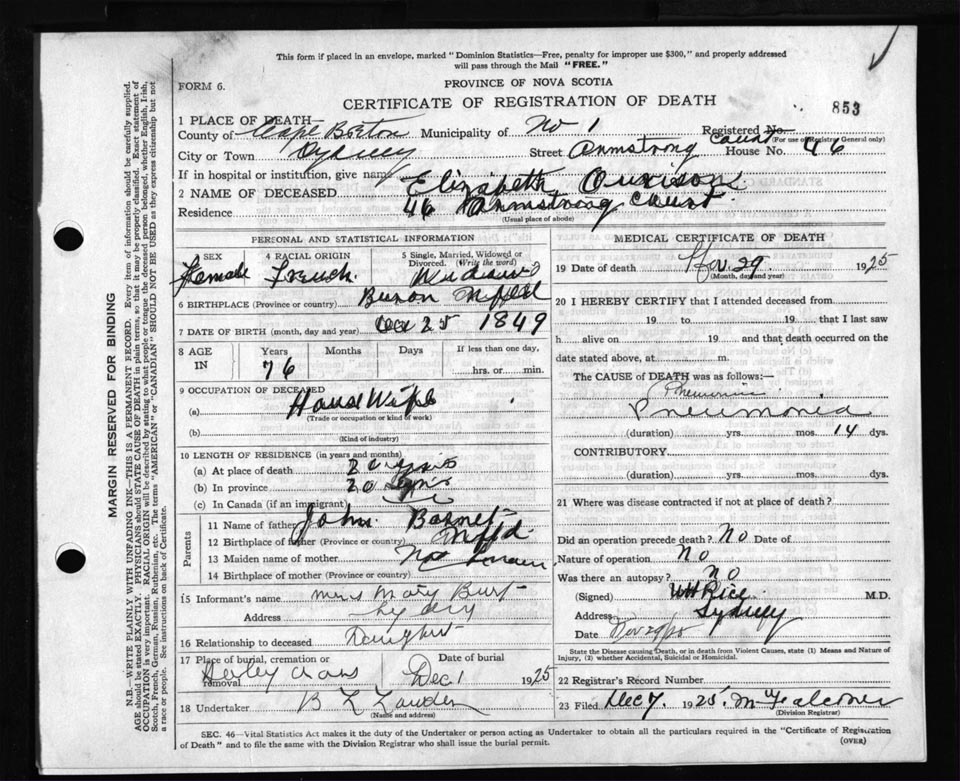 This form if placed in an envelope, marked "Dominion Statistics—Free, penalty for improper use $300," and properly addressed
will pass through the Mail "FREE."
FORM 6.
PROVINCE OF NOVA SCOTIA
CERTIFICATE OF REGISTRATION OF DEATH
853
1 PLACE OF DEATH—
County of Cape Breton Municipality of No 1 Registered No.
(For use of Registrar General only)
City or Town Sydney Street Armstrong Court House No. 46
If in hospital or institution, give name
2 NAME OF DECEASED Elizabeth
Residence 46 Armstrong Court
(Usual place of abode)
PERSONAL AND STATISTICAL INFORMATION
3 SEX Female
4 RACIAL ORIGIN French
5 Single, Married, Widowed or Divorced. (Write the word)
6 BIRTHPLACE (Province or country) Nfld
7 DATE OF BIRTH (month, day and year) 25 1849
8 AGE IN Years 76 Months Days If less than one day, hrs. or min.
9 OCCUPATION OF DECEASED
(a) House Wife
(Trade or occupation or kind of work)
(b)
(Kind of industry)
10 LENGTH OF RESIDENCE (in years and months)
(a) At place of death
(b) In province 20
(c) In Canada (if an immigrant)
Parents
11 Name of father John
12 Birthplace of father (Province or country) Nfld.
13 Maiden name of mother Not
14 Birthplace of mother (Province or country)
15 Informant's name Mrs Mary
Address Sydney
16 Relationship to deceased Daughter
17 Place of burial, cremation or removal
Date of burial Dec 1 1925
18 Undertaker B L
(Name and address)
MEDICAL CERTIFICATE OF DEATH
19 Date of death Nov 29 1925
(Month, day and year)
20 I HEREBY CERTIFY that I attended deceased from
19 to 19 that I last saw
h alive on 19 and that death occurred on the
date stated above, at m.
The CAUSE of DEATH was as follows:—
Pneumonia
Pneumonia
(duration) yrs. mos. 14 dys.
CONTRIBUTORY
(duration) yrs. mos. dys.
21 Where was disease contracted if not at place of death?
Did an operation precede death? No Date of
Nature of operation No
Was there an autopsy? No
(Signed) Rice M.D.
Address Sydney
Date Nov 29/25
State the Disease causing Death, or in death from Violent Causes, state (1) Means and Nature of
Injury, (2) whether Accidental, Suicidal or Homicidal.
22 Registrar's Record Number
23 Filed Dec 7. 1925.
(Division Registrar)
SEC. 46—Vital Statistics Act makes it the duty of the Undertaker or person acting as Undertaker to obtain all the particulars required in the "Certificate of Registration
of Death" and to file the same with the Division Registrar who shall issue the burial permit.
(OVER)
MARGIN RESERVED FOR BINDING
N.B.—WRITE PLAINLY WITH UNFADING INK—THIS IS A PERMANENT RECORD. Every item of information should be carefully supplied.
AGE should be stated EXACTLY. PHYSICIANS should STATE CAUSE OF DEATH in plain terms, so that it may be properly classified. Exact statement of
OCCUPATION is very important. RACIAL ORIGIN will be described by stating to what people or tongue the deceased person belonged, whether English, Irish,
Scotch, French, German, Russian, Ruthenian, etc. The terms "AMERICAN" or "CANADIAN" SHOULD NOT BE USED as they express citizenship but not
a race or people. See instructions on back of Certificate.